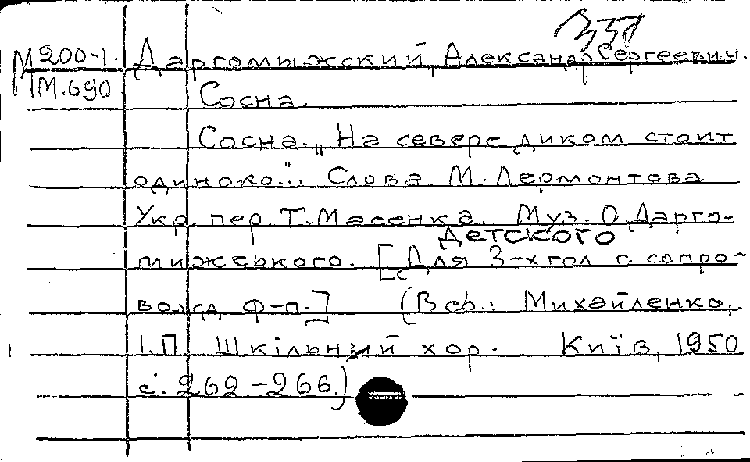 М200-1. Даргомыжский, Александр Сергеевич.
М.690
Сосна.
Сосна. „На севере диком стоит
одиноко...". Слова М. Лермонтова
Укр. пер. Т. Масенка. Муз. О. Дарго-
мижського. [Для детского 3-х гол с сопро-
вожд. ф-п.] (В сб.: Михайленко,
І.П. Шкільний хор. Київ, 1950
с. 262-266.)